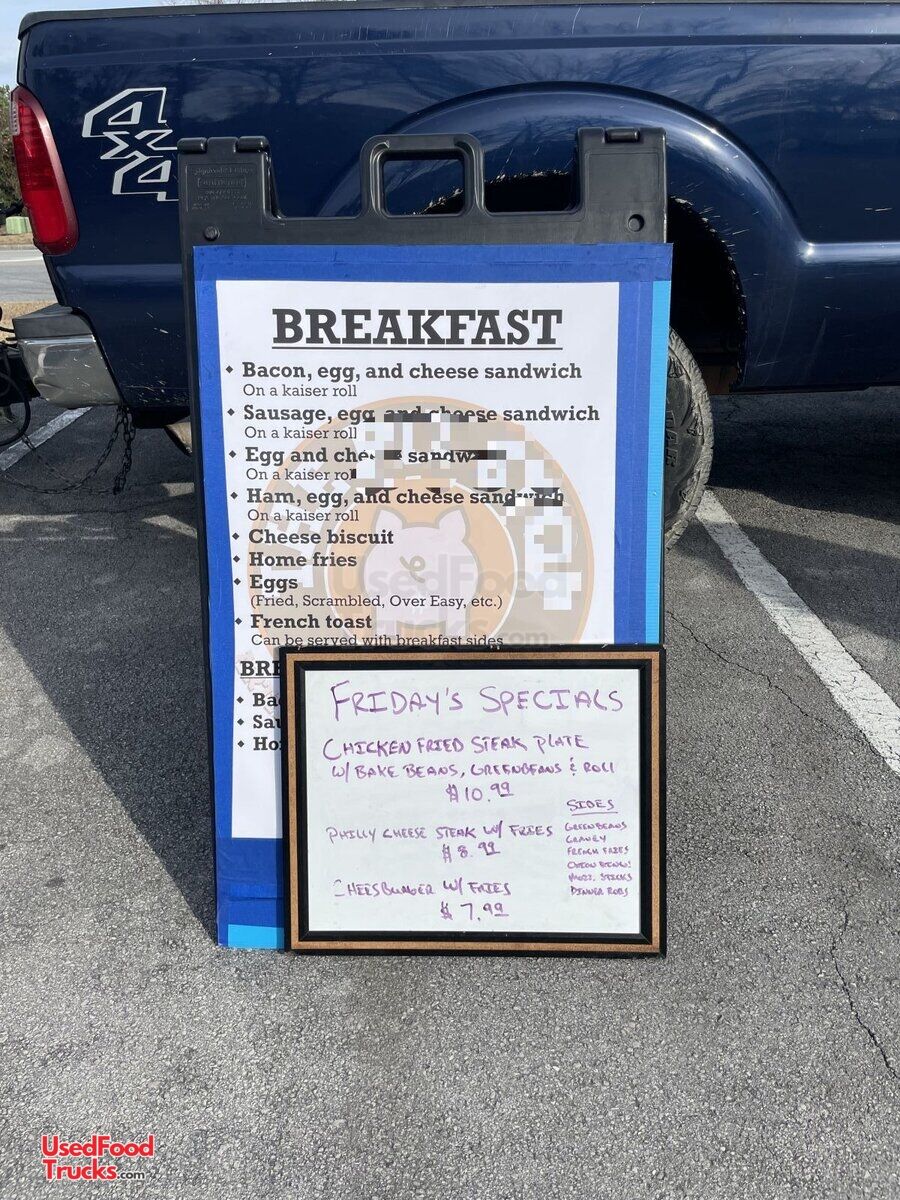 4x4
BREAKFAST
Bacon, egg, and cheese sandwich
On a kaiser roll
Sausage, egg and cheese sandwich
On a kaiser roll
Egg and
On a kaiser roll
Ham, egg, and cheese
On a kaiser roll
Cheese biscuit
Home fries
Eggs
(Fried, Scrambled, Over Easy, etc.)
French toast
Can be served with breakfast sides
BRE
Ba
Sau
Ho
FRIDAY'S SPECIALS
CHICKEN FRIED STEAK PLATE
W/ BAKE BEANS, GREENBEANS & ROLL
$10.99
PHILLY CHEESE STEAK W/ FRIES
$8.99
CHEESBURGER W/ FRIES
$7.99
SIDES
GREENBEANS
GRAVEY
FRENCH FRIES
ONION RINGS
MOZZ. STICKS
DINNER ROLLS
UsedFood
Trucks.com